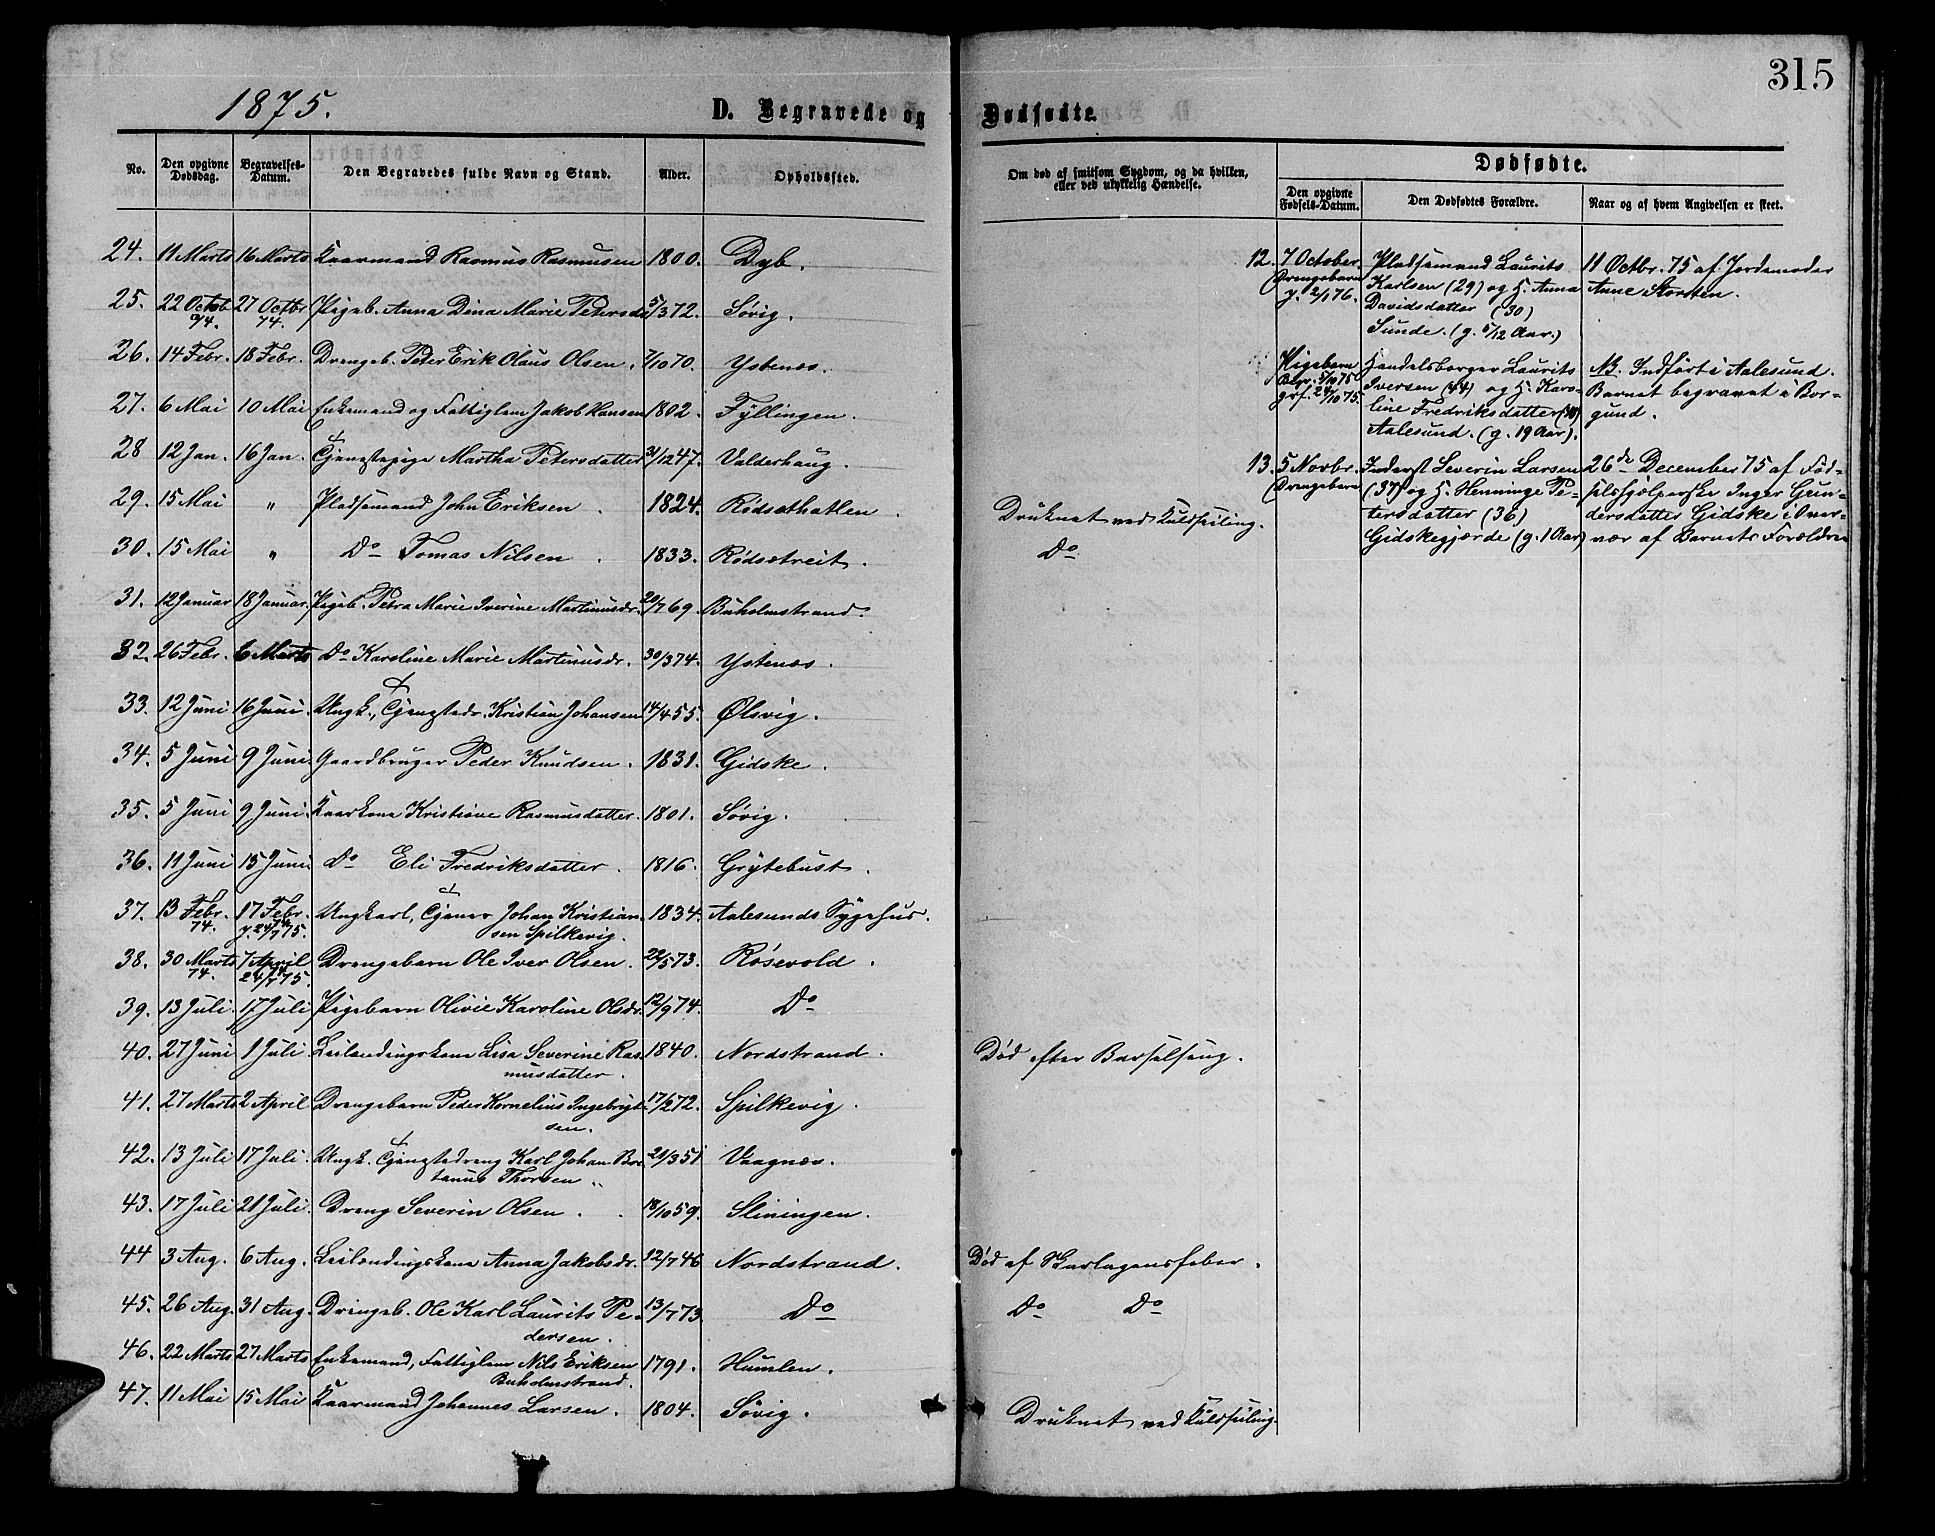 315
1875.
D. Begravede og Dødfødte.
No. Den opgivne Dødsdag. Begravelses-Datum. Den Begravedes fulde Navn og Stand. Alder. Opholdssted.
Om død af smitsom Sygdom, og da hvilken, eller ved ulykkelig Hændelse.
Dødfødte.
Den opgivne Fødsels-Datum. Den Dødfødtes Forældre. Naar og af hvem Angivelsen er skeet.
24. 11 Marts 16 Marts Kaarmand Rasmus Rasmusen 1800. Dyb.
25. 22 Octob 74. 27 Octbr 74. Pigeb. Anna Dina Marie Petersd. 5/3 72. Søvig.
26. 14 Febr. 18 Febr. Drengeb. Peder Erik Olaus Olsen. 7/10 70. Ystenæs.
27. 6 Mai 10 Mai Enkemand og Fattiglem Jakob Hansen 1802. Fyllingen.
28 12 Jan. 16 Jan. Tjenestepige Martha Petersdatter 31/12 47. Valderhaug.
29. 15 Mai " Pladsemand John Eriksen. 1824. Rødsæthatlen.
Druknet ved Kuldseiling.
30. 15 Mai " Do Tomas Nilsen. 1833. Rødsætreit.
Do
31. 12 Januar 18 Januar. Pigeb. Petra Marie Iverine Martinusdr. 20/7 69. Buholmstrand.
32. 26 Febr. 6 Marts Do Karoline Marie Martinusdr. 30/3 74. Ystenæs.
33. 12 Juni 16 Juni. Ungk., Tjenestedr. Kristian Johansen 14/4 55. Ølsvig.
34. 5 Juni 9 Juni. Gaardbruger Peder Knudsen. 1831. Gidske.
35. 5 Juni 9 Juni. Kaarkona Kristiane Rasmusdatter. 1801. Søvig.
36. 11 Juni 15 Juni. Do Eli Fredriksdatter. 1816. Grytebust.
37. 13 Febr. 74. 17 Febr. Ungkarl, Tjener Johan Kristian- 1834. Aalesunds Sygehus.
sen Spilkevig.
38. 30 Marts 74. 7 April Drengebarn Ole Iver Olsen. 22/5 73. Røsevold.
39. 13 Juli 17 Juli Pigebarn Olivie Karoline Olsdr. 12/9 74. Do
40. 27 Juni 1 Juli Leilændingskona Lisa Severine Ras- 1840. Nordstrand.
musdatter.
Død efter Barselseng.
41. 27 Marts 2 April Drengebarn Peder Kornelius Ingebrigt- 17/2 72. Spilkevig.
sen.
42. 13 Juli 17 Juli. Ungk. Tjenestedreng Karl Johan 21/3 51 Vaagnæs.
Thorsen
43. 17 Juli 21 Juli. Dreng Severin Olsen. 18/10 59. Slinningen.
44 3 Aug. 6 Aug. Leilændingskona Anna Jakobsdr. 12/7 46 Nordstrand.
Død af Skarlagensfeber.
45. 26 Aug. 31 Aug. Drengeb. Ole Karl Laurits Pe- 13/7 73. Do
dersen.
Do Do
46. 22 Marts 27 Marts Enkemand, Fattiglem Nils Eriksen 1791. Humlen.
Buholmstrand.
47. 11 Mai 15 Mai Kaarmand Johannes Larsen. 1804. Søvig.
Druknet ved Kuldseiling.
12. 7 October. Pladsemand Laurits 11 Octbr. 75 af Jordemoder
Drengebarn Karlsen (29) og H. Anna Anne Storsten.
Davidsdatter (30)
Sunde. (g. 5/12 Aar.)
Pigebarn Handelsborger Laurits NB. Indført i Aalesund.
Iversen (44) og H. Karo- Barnet begravet i Bor-
line Fredriksdatter gund.
Aalesund. (g. 19 Aar).
13. 5 Novbr. Inderst Severin Larsen 26de December 75 af Fød-
Drengebarn (37) og H. Henninge Pe- selshjælperske Inger Gun-
tersdatter (36) dersdatter Gidske i Over-
Gidskegjærde (g. 1 Aar) vær af Barnets Forældre